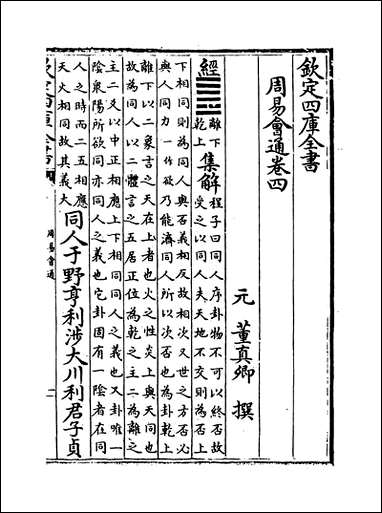 欽定四庫全書
周易會通卷四
元 董真卿 撰
經 ䷌ 離下乾上 集解 程子曰同人序卦物不可以終否故
受之以同人夫天地不交則為否上
下相同則為同人與否義相反故相次又世之方否必
與人同力一作欲乃能濟同人所以次否也為卦乾上
離下以二象言之天在上者也火之性炎上與天同也
故為同人以二體言之五居正位為乾之主二為離之
主二爻以中正相應上下相同同人之義也又卦唯一
陰衆陽所欲同亦同人之義也它卦固有一陰者在同
人之時而二五相應
天火相同故其義大
同人于野亨利涉大川利君子貞
周易會通